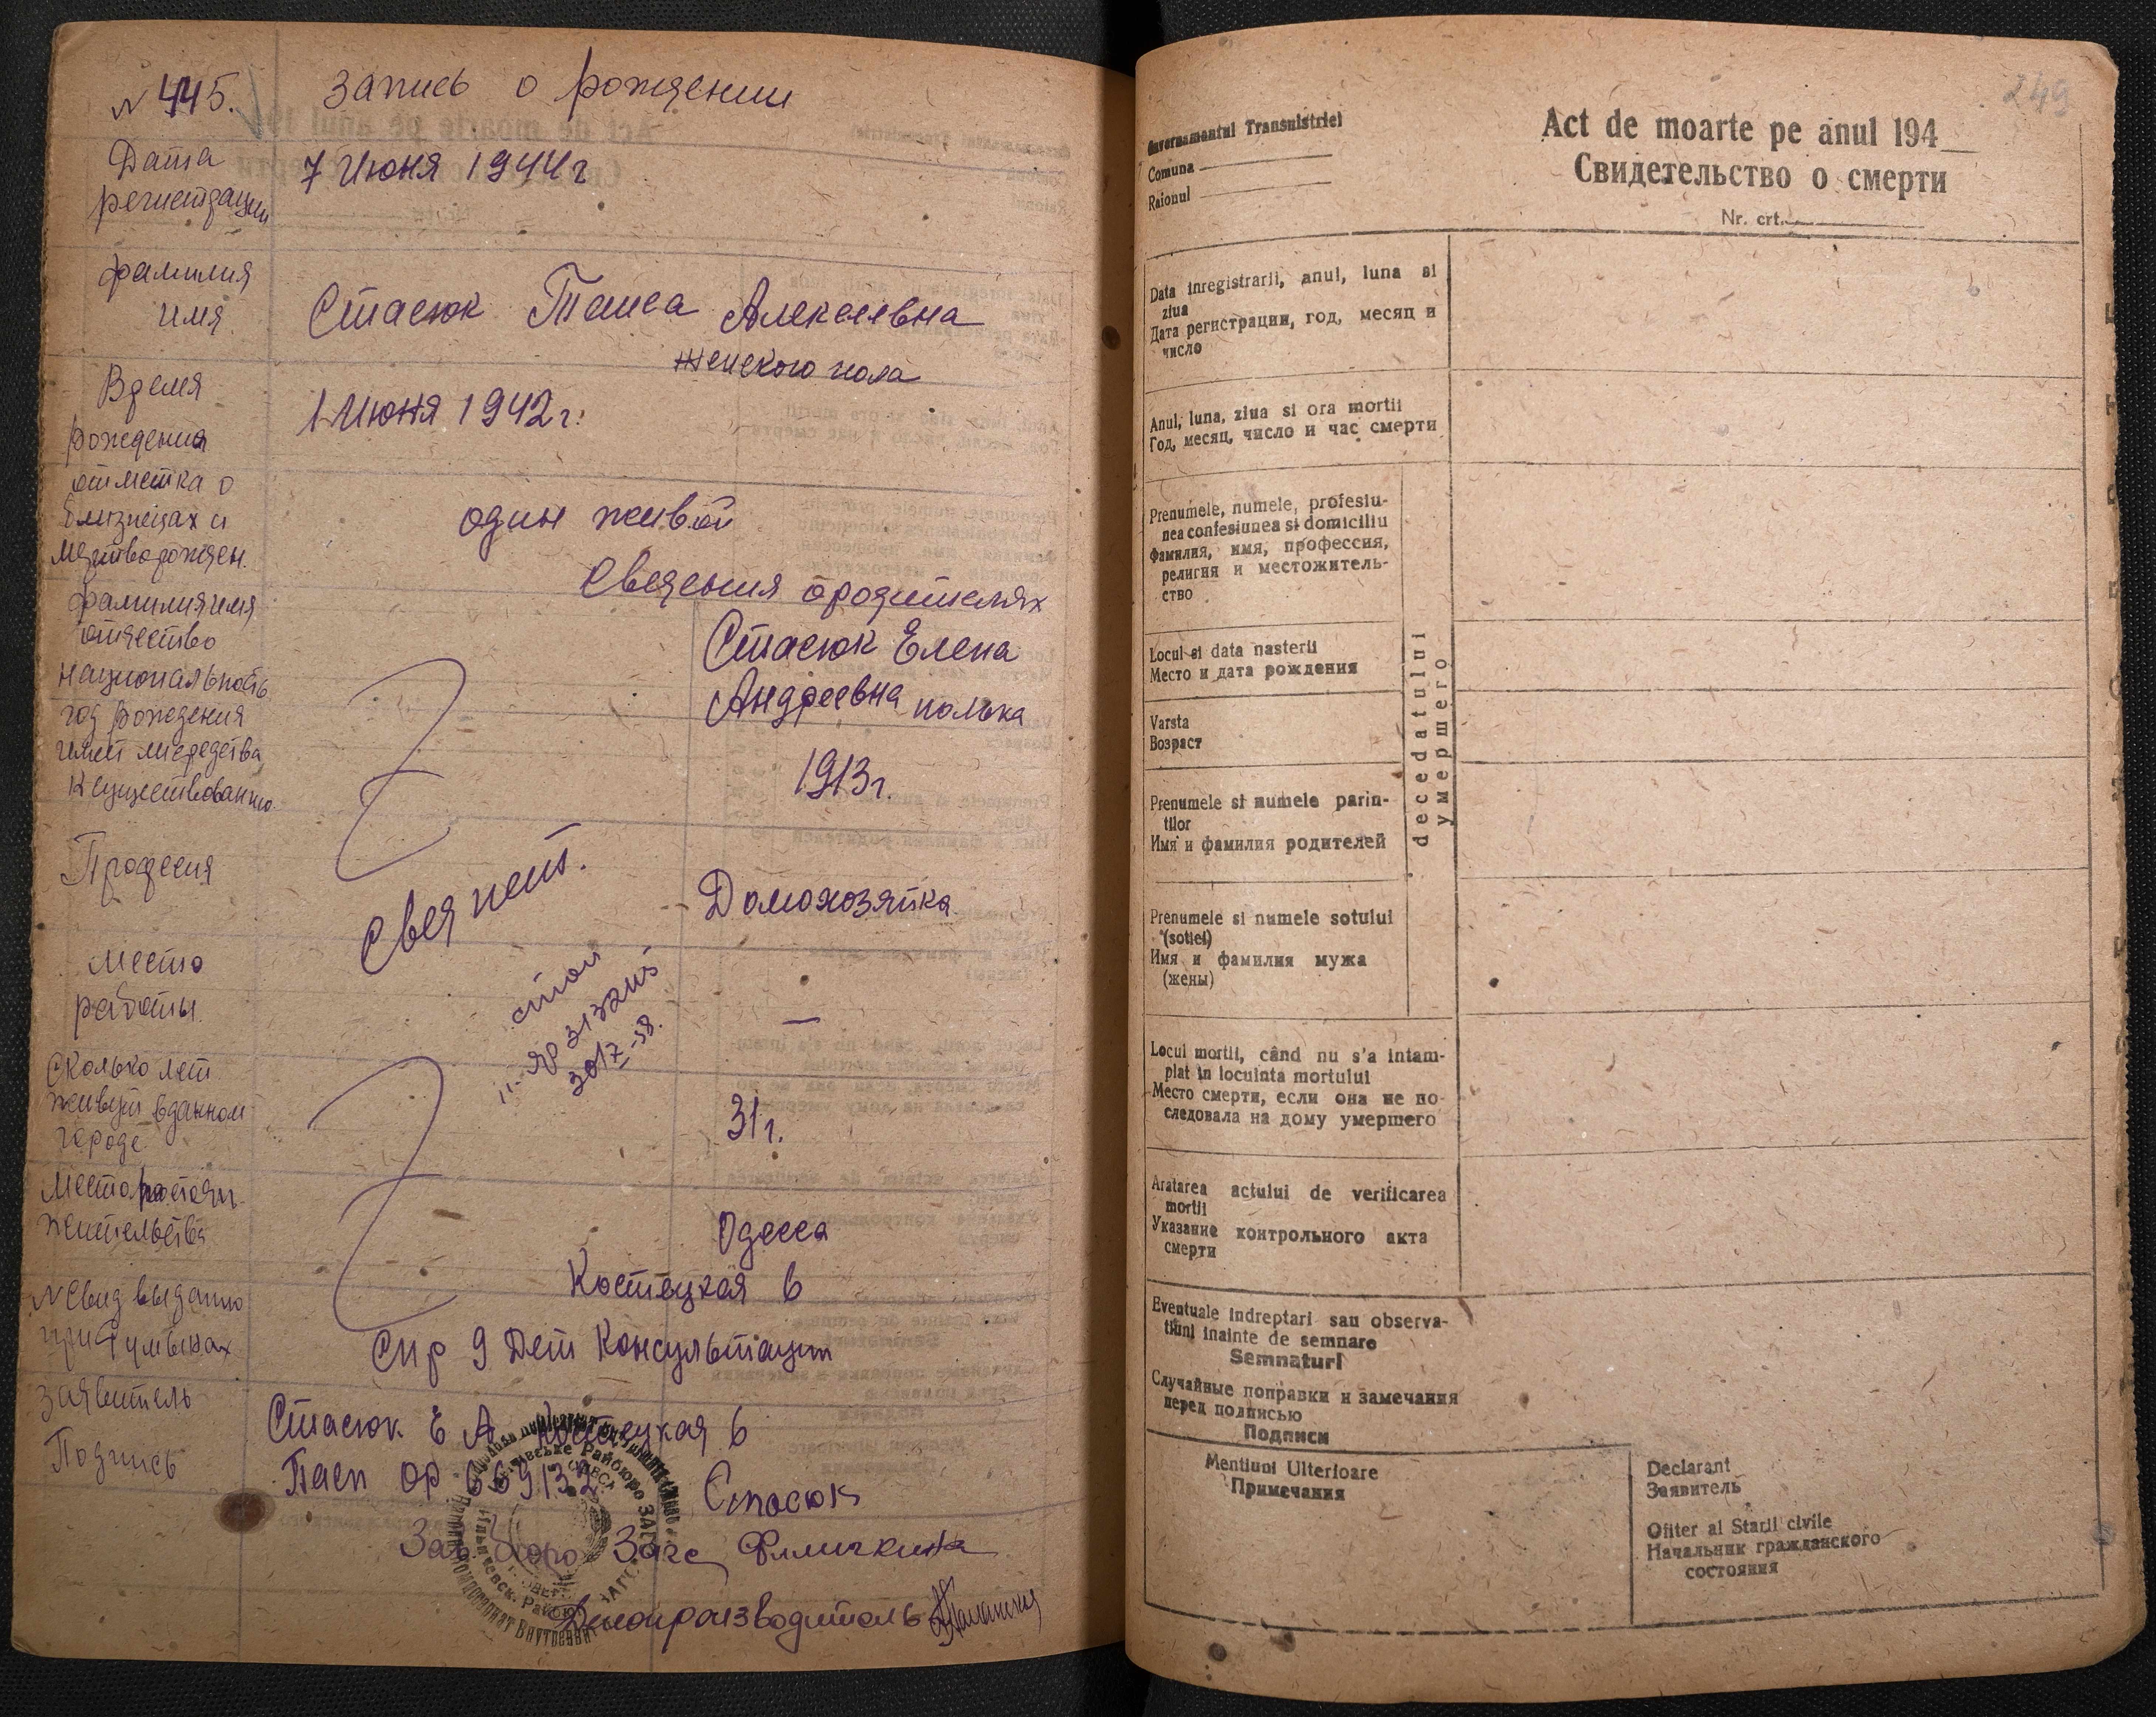 N 445. Запись о рождении
Дата
регистрации
7 Июня 1944 г
фамилия
имя
Стасюк Таиса Алексеевна
женского пола
Время
рождения
1 Июня 1942 г.
отметка о
близнецах и
мертворожден.
один живой
Сведения о родителях
фамилия имя
отчество
национальность
год рождения
Стасюк Елена
Андреевна полька
1913 г.
к существованию
Професия
Свед нет.
Домохозяйка
Место
работы.
—
Сколько лет
живет в данном
городе
31 г.
Место постоян
жительства
Одесса
Костецкая 6
N свид выданно
при Румынах
Спр 9 Дет Консультации
Заявитель
Подпись
Стасюк Е А Костецкая 6
Пасп ОР 669132 Стасюк
Зав Бюро Загс
Делопроизводитель
249
Guvernamantul Transnistriei
Comuna
Raionul
Act de moarte pe anul 194
Свидетельство о смерти
Nr. crt.
Data inregistrarii, anul, luna si
ziua
Дата регистрации, год, месяц и
число
Anul, luna, ziua si ora mortii
Год, месяц, число и час смерти
Prenumele, numele, profesiu-
nea confesiunea si domiciliu
Фамилия, имя, профессия,
религия и местожитель-
ство
Locul si data nasterii
Место и дата рождения
Varsta
Возраст
Prenumele si numele parin-
tilor
Имя и фамилия родителей
Prenumele si numele sotului
(sotiei)
Имя и фамилия мужа
(жены)
decedatului
умершего
Locul mortii, când nu s'a intam-
plat in locuinta mortului
Место смерти, если она не по-
следовала на дому умершего
Aratarea actului de verificarea
mortii
Указание контрольного акта
смерти
Eventuale indreptari sau observa-
tiuni inainte de semnare
Semnaturi
Случайные поправки и замечания
перед подписью
Подписи
Mentiuni Ulterioare
Примечания
Declarant
Заявитель
Ofiter al Starii civile
Начальник гражданского
состояния